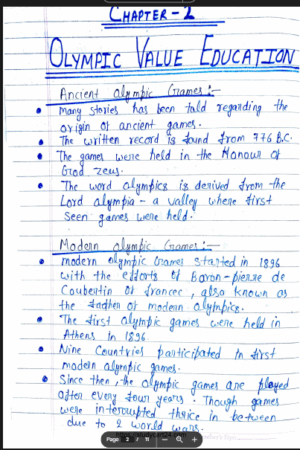 CHAPTER-2
OLYMPIC VALUE EDUCATION
Ancient Olympic Games:-
• Many stories has been told regarding the
origin of ancient games.
• The written record is found from 776 B.C.
• The games were held in the Honour of
God zeus.
• The word olympics is derived from the
Lord olympia - a valley where first
seen games were held.
Modern Olympic Games:-
• modern olympic Games started in 1896
with the efforts of Baron-pierre de
Coubertin of francec, also known as
the father of modern olympics.
• The first olympic games were held in
Athens in 1896
• Nine Countries participated in first
modern olympic games.
• Since then, the olympic games are played
after every four years. Though games
were interrupted thrice in between
due to 2 world wars.
Page 2 / 11